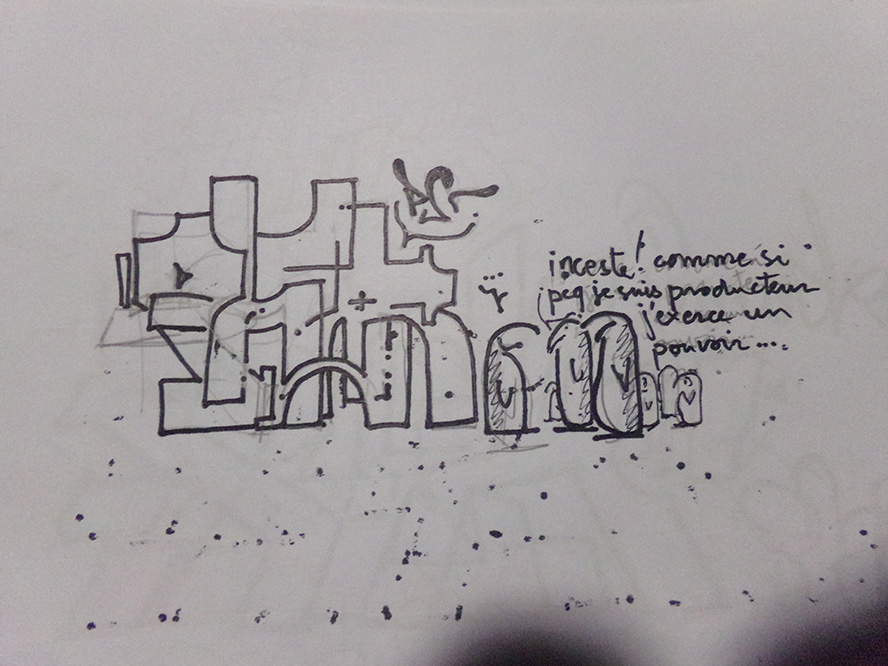 inceste! comme si
pcq je suis producteur
j'exerce un
pouvoir....